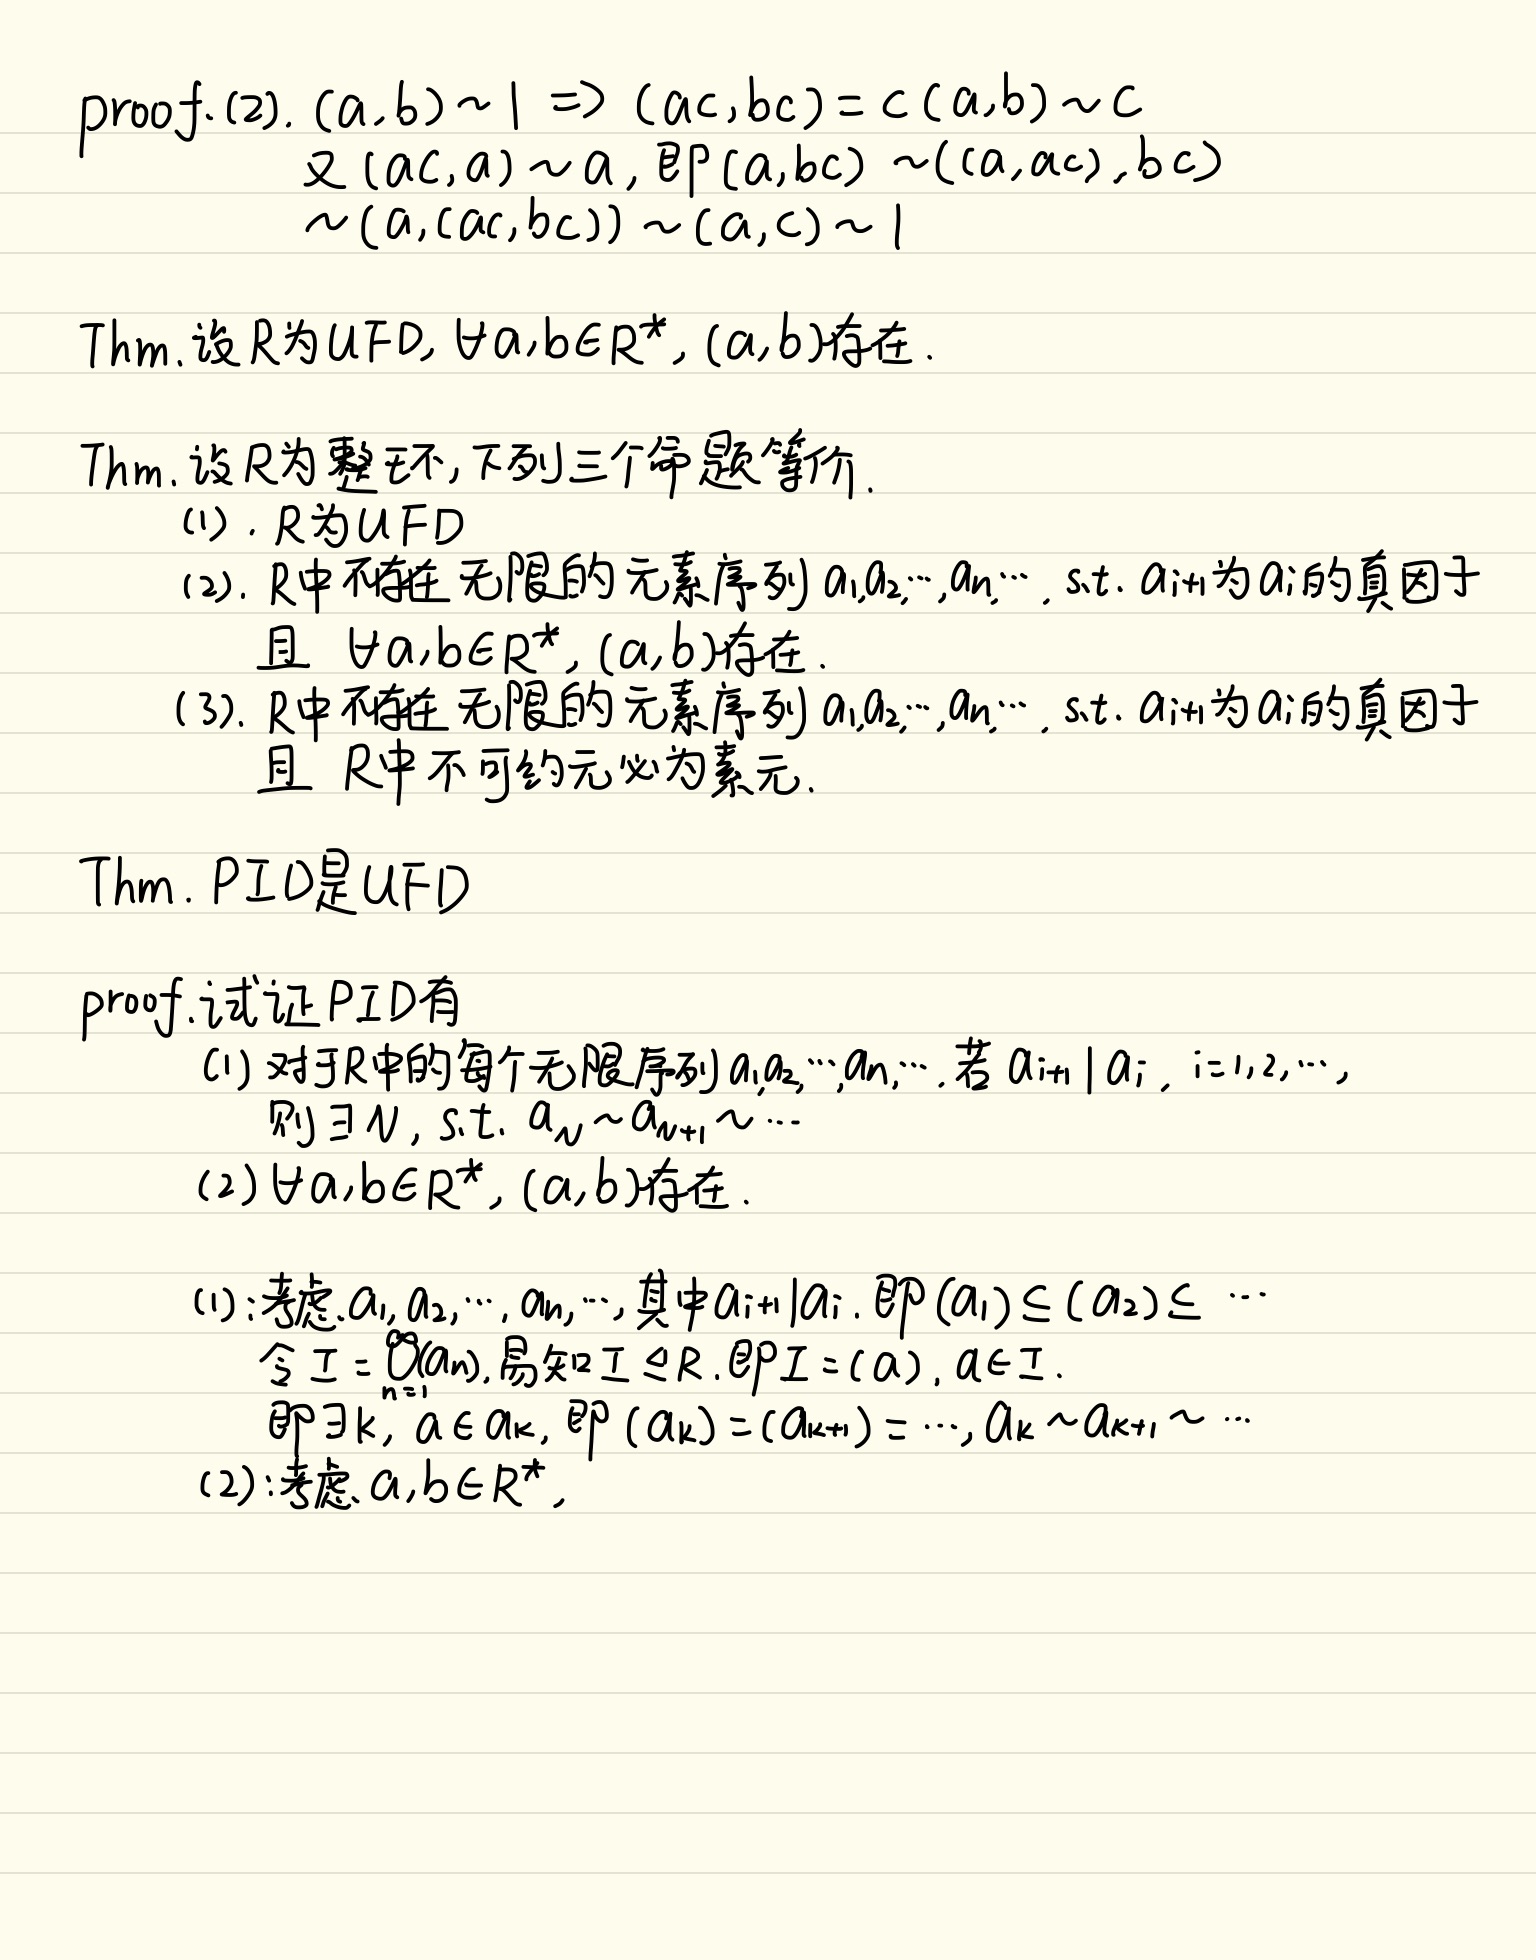 proof.(2). (a,b)~1 => (ac,bc)=c(a,b)~c
又(ac,a)~a,即(a,bc) ~((a,ac),bc)
~(a,(ac,bc))~(a,c)~1
Thm.设R为UFD,∀a,b∈R*,(a,b)存在.
Thm.设R为整环,下列三个命题等价.
(1). R为UFD
(2). R中不存在无限的元素序列a₁,a₂,…,aₙ,…, s.t. aᵢ₊₁为aᵢ的真因子
且 ∀a,b∈R*,(a,b)存在.
(3). R中不存在无限的元素序列a₁,a₂,…,aₙ,…, s.t. aᵢ₊₁为aᵢ的真因子
且 R中不可约元必为素元.
Thm. PID是UFD
proof.试证PID有
(1)对于R中的每个无限序列a₁,a₂,…,aₙ,….若aᵢ₊₁|aᵢ, i=1,2,…,
则∃N, s.t. a_N~a_{N+1}~…
(2)∀a,b∈R*,(a,b)存在.
(1):考虑a₁,a₂,…,aₙ,…,其中aᵢ₊₁|aᵢ.即(a₁)⊆(a₂)⊆ …
令I=⋃_{n=1}^{∞}(aₙ),易知I⊴R.即I=(a),a∈I.
即∃k, a∈aₖ,即(aₖ)=(aₖ₊₁)=…,aₖ~aₖ₊₁~…
(2):考虑a,b∈R*,